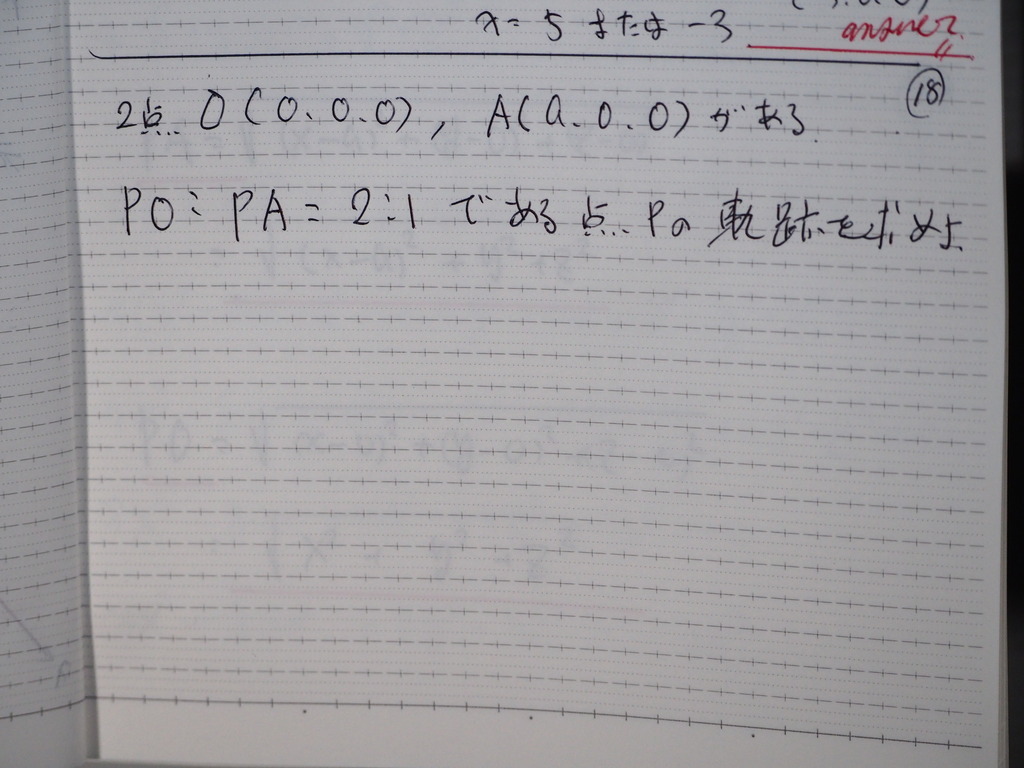 x = 5 または -3
answer
(18)
2点 O(0.0.0), A(a.0.0)がある.
PO:PA=2:1である点Pの軌跡を求めよ.
A